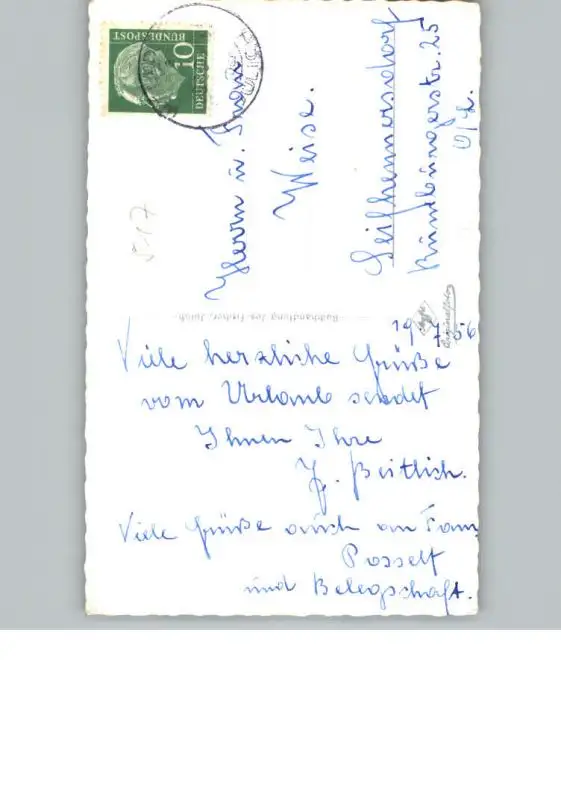 10
DEUTSCHE
BUNDESPOST
Herrn u. Frau
Weise.
Seifhennersdorf
Rumburgerstr. 25
O/L.
517
Buchhandlung Jos. Fischer, Jülich
19 7. 56
Viele herzliche Grüße
vom Urlaub sendet
Ihnen Ihre
Beitlich.
Viele Grüße auch an Fam.
Posselt
und Belegschaft.